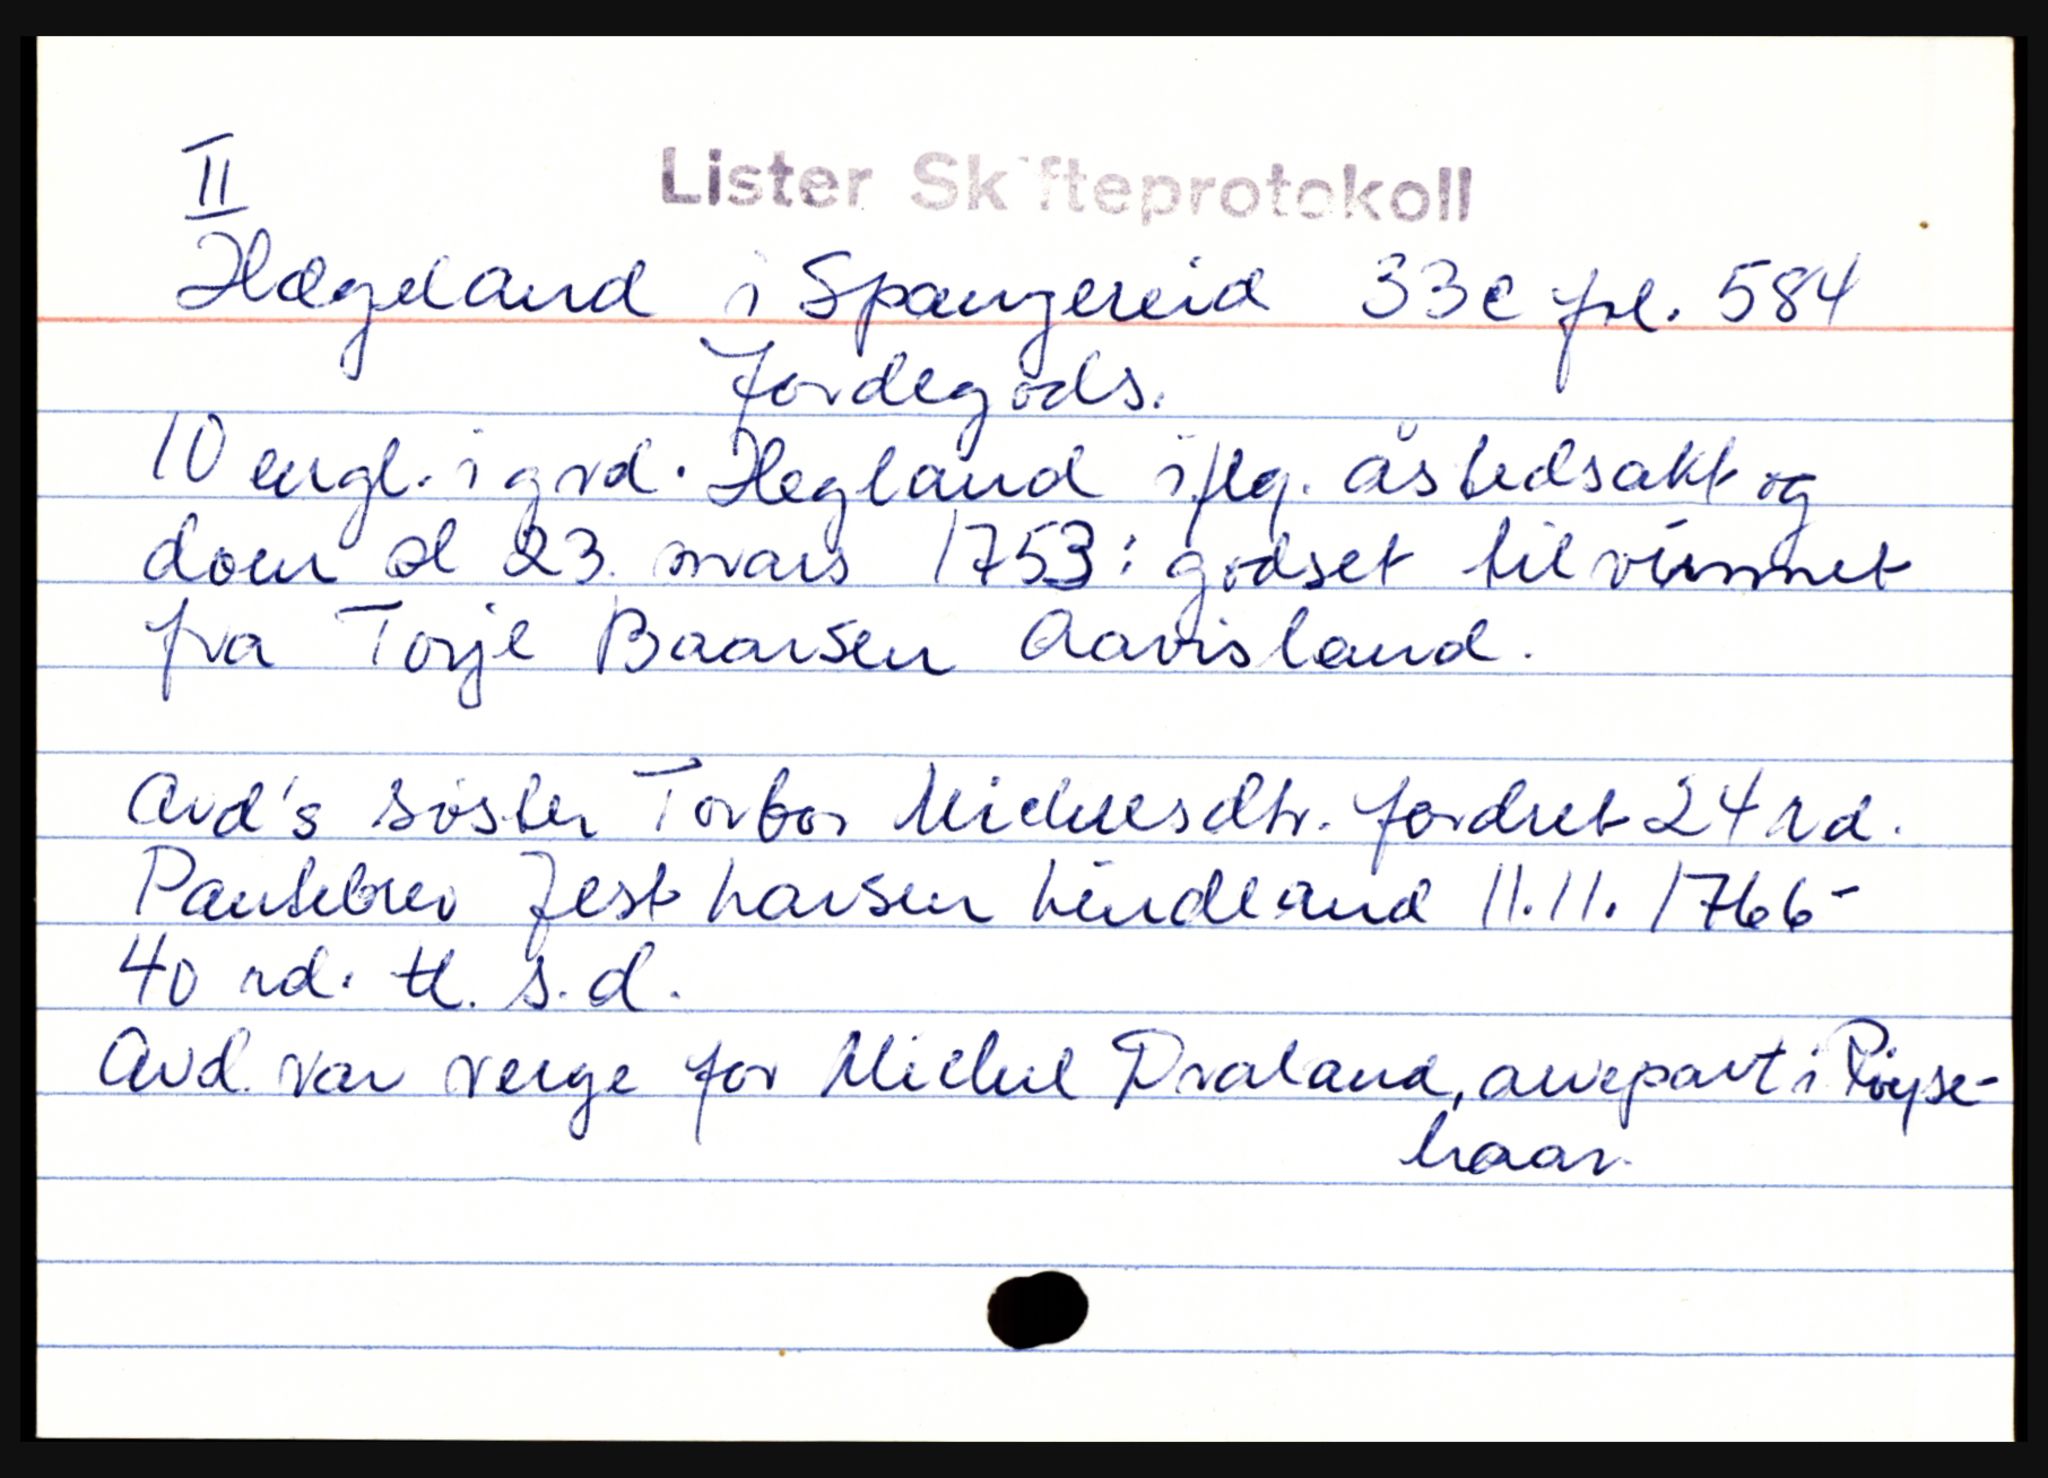 II
Lister Skifteprotokoll
Hægeland i Spangereid 33c fol. 584
Jordegods.
10 engl. i grd. Hegland iflg. åstedsakt og
dom d 23. mars 1753: godset tilvunnet
fra Torje Baarsen Aavisland.
Avd's søster Torbor Michelsdtr. fordret 24 rd.
Pantebrev Jest Larsen Lindland 11.11. 1766-
40 rd. tl. s.d.
Avd. var verge for Michel Draland, arvepart i Röyse-
haar.